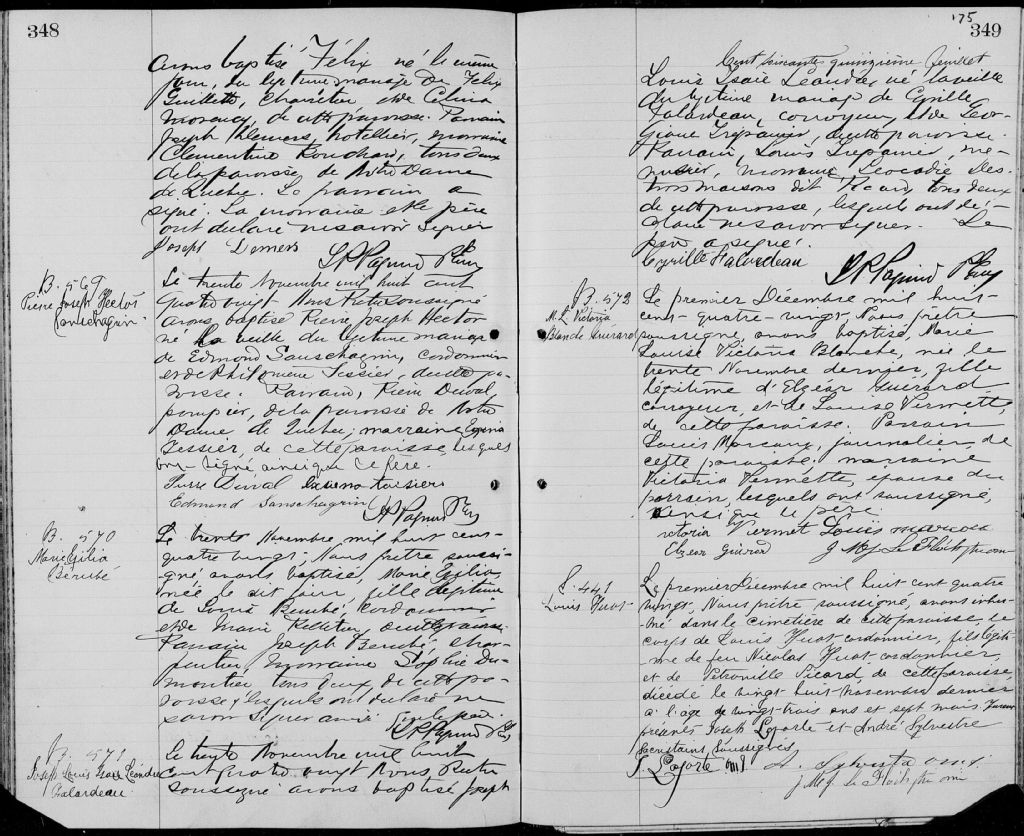 348
avons baptisé Félix né le même
jour, du légitime mariage de Félix
Guillette, Charretier et de Célina
de cette paroisse. Parrain
Joseph Demers, hotellier, marraine
Clementine Bouchard, tous deux
de la paroisse de Notre Dame
de Québec. Le parrain a
signé. La marraine et le père
ont déclaré ne savoir signer
Joseph Demers
B. 569
Pierre Joseph Hector
Sanschagrin
Le trente Novembre mil huit cent
quatre vingt Nous Prêtre soussigné
avons baptisé Pierre Joseph Hector
né la veille du légitime mariage
de Edmond Sanschagrin, Cordonnier
et de Philomène Tessier, de cette pa-
roisse. Parrain, Pierre Duval
pompier, de la paroisse de Notre
Dame de Québec; marraine
Tessier de cette paroisse, lesquels
ont signé ainsi que le père.
Pierre Duval
Edmond Sanschagrin
B. 570
Marie Exilia
Bérubé
Le trente Novembre mil huit cent-
quatre vingt, Nous prêtre soussi-
gné avons baptisé, Marie Exilia
née le dit jour, fille légitime
de Louis Bérubé Cordonnier
et de Marie Pelletier, de cette paroisse
Parrain Joseph Bérubé, char-
pentier, marraine Sophie Du-
montier tous deux de cette pa-
roisse, lesquels ont déclaré ne
savoir signer ainsi que le père.
B. 571
Joseph Louis Isaïe Léandre
Falardeau.
Le trente Novembre mil huit
cent quatre vingt Nous Prêtre
soussigné avons baptisé Joseph
175
349
Cent soixante quinzième feuillet
Louis Isaïe Léandre, né la veille
du légitime mariage de Cyrille
Falardeau, corroyeur, et de Geor-
giana Trépanier, de cette paroisse.
Parrain, Louis Trépanier, me-
nuisier, marraine Léocadie Des-
trois maisons dit Picard, tous deux
de cette paroisse, lesquels ont dé-
claré ne savoir signer. Le
père a signé.
Cyrille Falardeau
B. 572
M. L. Victoria
Blanche Guérard
Le premier Décembre mil huit-
cent-quatre-vingt, Nous prêtre
soussigné, avons baptisé, Marie
Louise Victoria Blanche, née le
trente Novembre dernier, fille
légitime d'Elzéar Guérard
corroyeur, et de Louise Vermette,
de cette paroisse. Parrain
Louis Marcoux, journalier, de
cette paroisse, marraine
Victoria Vermette, épouse du
parrain, lesquels ont soussigné,
ainsi que le père
Victoria Vermet Louis marcoux
Elzear Guérard
S. 441
Louis Huot
Le premier Décembre mil huit cent quatre
vingt, Nous prêtre soussigné, avons inhu-
mé dans le cimetière de cette paroisse, le
corps de Louis Huot cordonnier, fils légiti-
me de feu Nicolas Huot cordonnier,
et de Pétronille Picard, de cette paroisse
décédé le vingt huit Novembre dernier
à l'âge de vingt-trois ans et sept mois. Furent
présents Joseph Laporte et André Sylvestre
sacristains, soussignés
J. Laporte omi A. Sylvestre o m i.